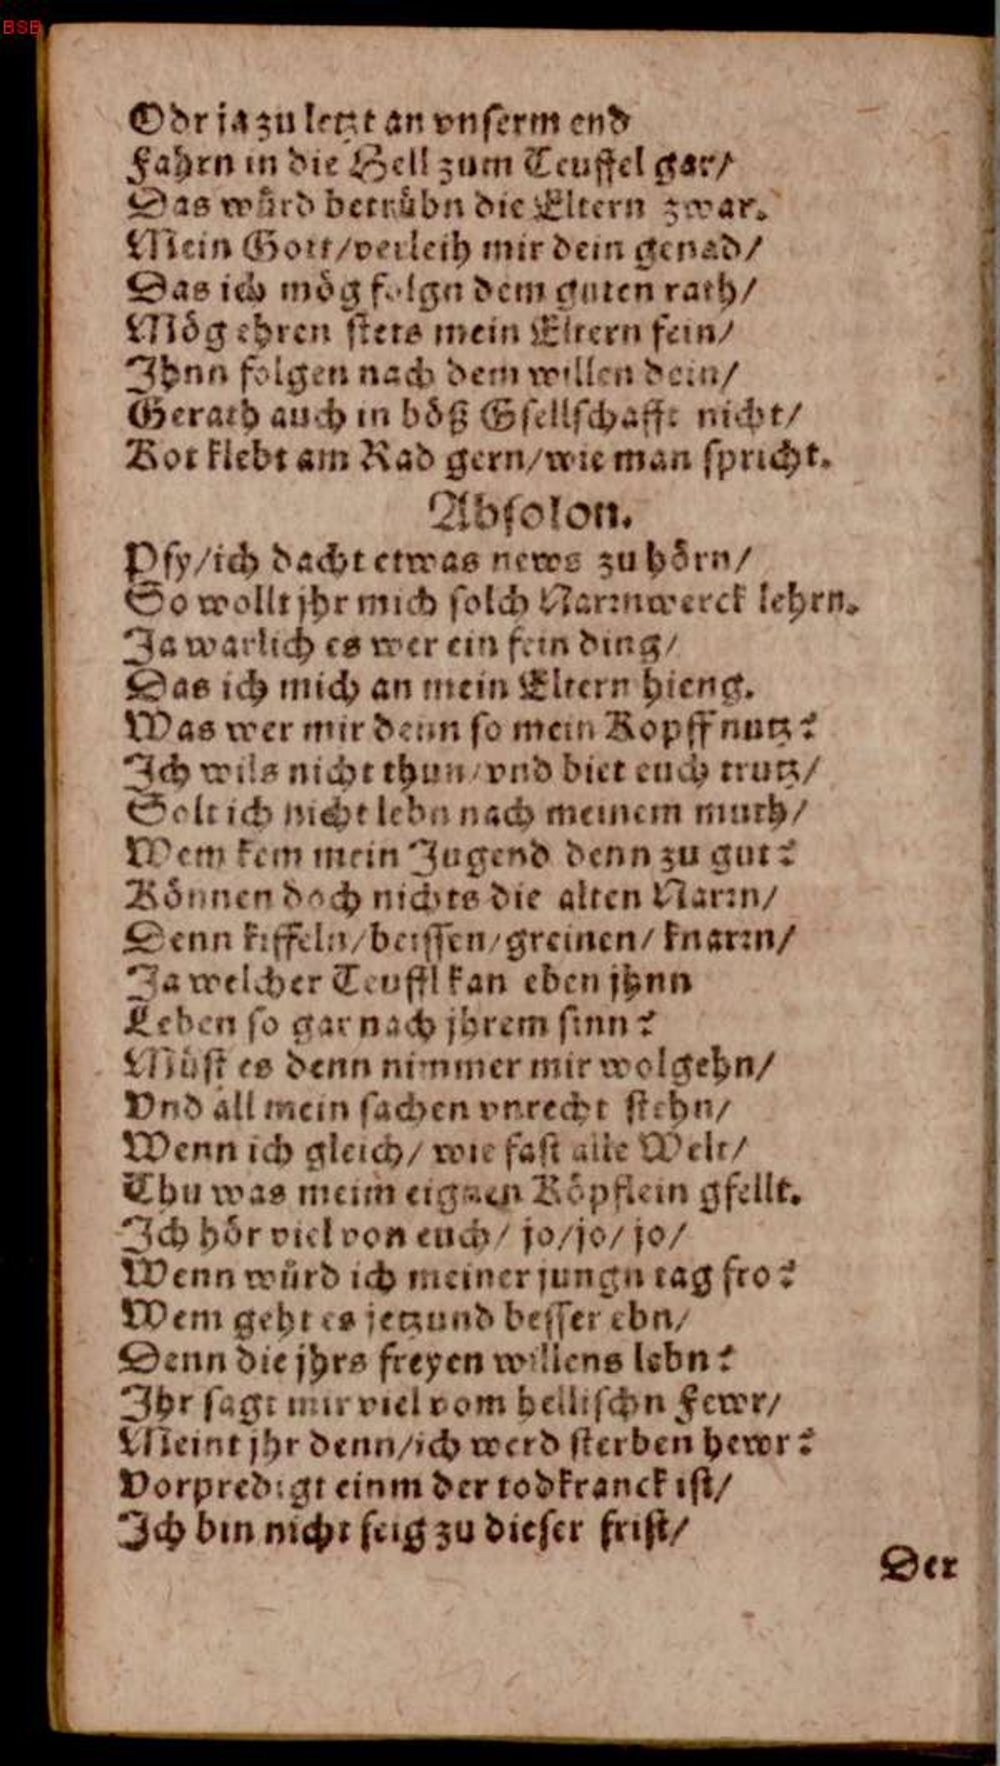 BSB
Odr ja zu letzt an vnserm end
Fahrn in die Hell zum Teuffel gar/
Das wuͤrd betruͤbn die Eltern zwar.
Mein Gott/verleih mir dein genad/
Das ich moͤg folgn dem guten rath/
Moͤg ehren stets mein Eltern fein/
Ihnn folgen nach dem willen dein/
Gerath auch in boͤß Gsellschafft nicht/
Kot klebt am Rad gern/wie man spricht.
Absolon.
Pfy/ich dacht etwas news zu hoͤrn/
So wollt jhr mich solch Narrnwerck lehrn.
Ja warlich es wer ein fein ding/
Das ich mich an mein Eltern hieng.
Was wer mir denn so mein Kopff nutz?
Ich wils nicht thun/vnd biet euch trutz/
Solt ich nicht lebn nach meinem muth/
Wem kem mein Jugend denn zu gut?
Koͤnnen doch nichts die alten Narrn/
Denn kiffeln/beissen/greinen/knarrn/
Ja welcher Teuffl kan eben jhnn
Leben so gar nach jhrem sinn?
Muͤst es denn nimmer mir wolgehn/
Vnd all mein sachen vnrecht stehn/
Wenn ich gleich/wie fast alle Welt/
Thu was meim eignen Koͤpflein gfellt.
Ich hoͤr viel von euch/jo/jo/jo/
Wenn wuͤrd ich meiner jungn tag fro?
Wem geht es jetzund besser ebn/
Denn die jhrs freyen willens lebn?
Ihr sagt mir viel vom hellischn Fewr/
Meint jhr denn/ich werd sterben hewr?
Vorpredigt einm der todkranck ist/
Ich bin nicht feig zu dieser frist/
Der